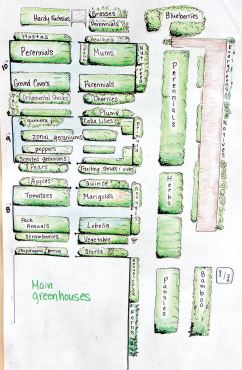 Hardy Fuchsias
Grasses
Perennials
Blueberries
Hostas
Heuchera
Perennials
Mums
10
Ground Covers
Perennials
Ornamental Shrubs
Cherries
Plums
Calla Lilies
9
Zonal geraniums
peppers
Scented geraniums
Fruiting shrubs/vines
Pears
Apples
Quince
Tomatoes
Marigolds
8
Pack
Annuals
Lobelia
Strawberries
Vegetable
Starts
Perennials
Herbs
Pansies
Bamboo
Ferns
Main
greenhouses